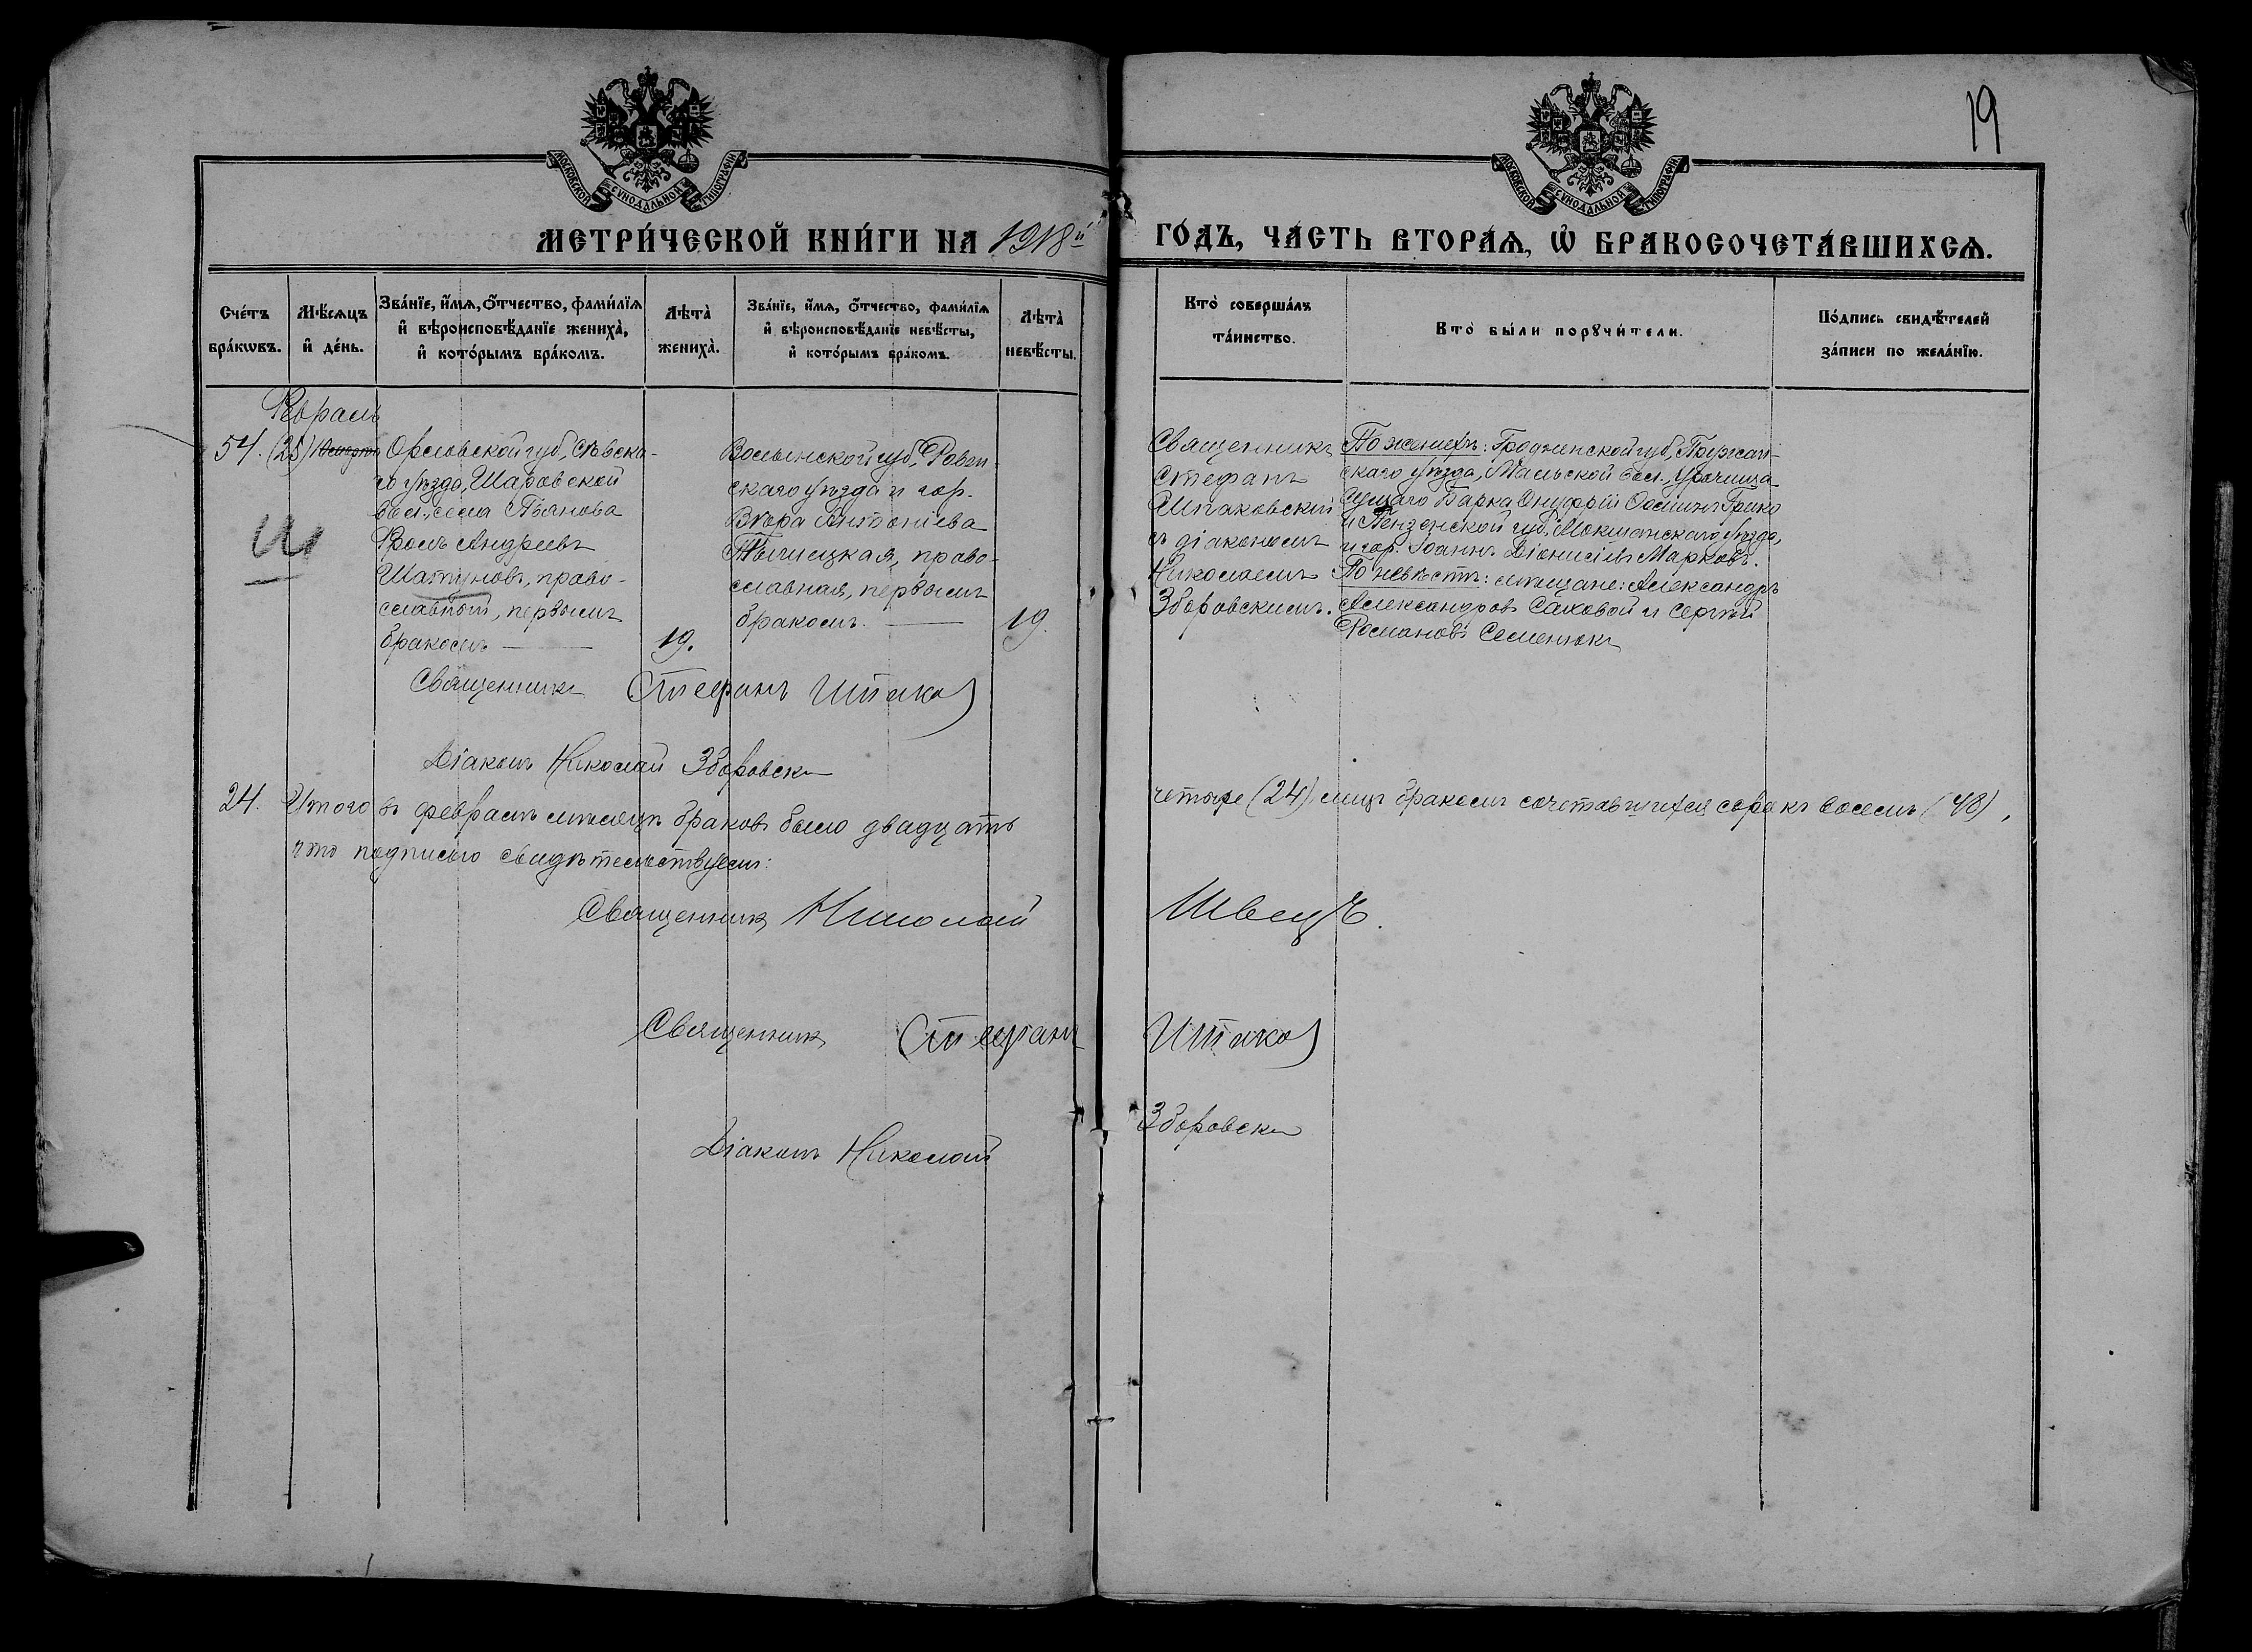 19
МОСКОВСКОЙ СѴНОДАЛЬНОЙ ТИПОГРАФІИ
МОСКОВСКОЙ СѴНОДАЛЬНОЙ ТИПОГРАФІИ
МЕТРИ́ЧЕСКОЙ КНИ́ГИ НА 1918й
ГО́ДЪ, ЧА́СТЬ ВТОРА́Ѧ, Ѡ҆ БРАКОСОЧЕТА́ВШИХСѦ.
Сче́тъ
бра́кѡвъ.
Мѣ́сѧцъ
и҆ де́нь.
Зва́нїе, и҆́мѧ, ѻ҆́тчество, фами́лїѧ
и҆ вѣроисповѣ́данїе жениха̀,
и҆ кото́рымъ бра́комъ.
Лѣта̀
жениха̀.
Зва́нїе, и҆́мѧ, ѻ҆́тчество, фами́лїѧ
и҆ вѣроисповѣ́данїе невѣ́сты,
и҆ кото́рымъ бра́комъ.
Лѣта̀
невѣ́сты.
Кто̀ соверша́лъ
та́инство.
Кто̀ бы́ли порꙋчи́тели.
По́дпись свидѣ́телей
за́писи по жела́нїю.
Февраль
54. (28)
Орловской губ., Сѣвска-
го уѣзда, Шаровской
вол., села Пьянова
Андреевъ
Шатуновъ, право-
славный, первымъ
бракомъ
19.
Волынской губ., Ровен-
скаго уѣзда и гор.
Вѣра Антоніева
право-
славная, первымъ
бракомъ.
19.
Священникъ
Стефанъ
Шпаковскій
съ діакономъ
Николаемъ
Зборовскимъ.
По женихѣ: Гродненской губ., Пружан-
скаго уѣзда, Мальской вол., урочища
Онуфрій Осипъ Грико
и Пензенской губ., Мокшанскаго уѣзда,
и гор. Іоаннъ Діонисіевъ Марковъ.
По невѣстѣ: мѣщане: Александръ
Александровъ Саховой и Сергѣй
Романовъ Семенюкъ
Священникъ Стефанъ Шпако
Діаконъ Николай Зборовски
24. Итого въ февралѣ мѣсяцѣ браковъ было двадцать
четыре (24), лицъ бракомъ сочетавшихся сорокъ восемь (48),
что подписью свидѣтельствуемъ:
Священникъ Николай Швецъ.
Священникъ Стефанъ Шпако
Діаконъ Николай Зборовски